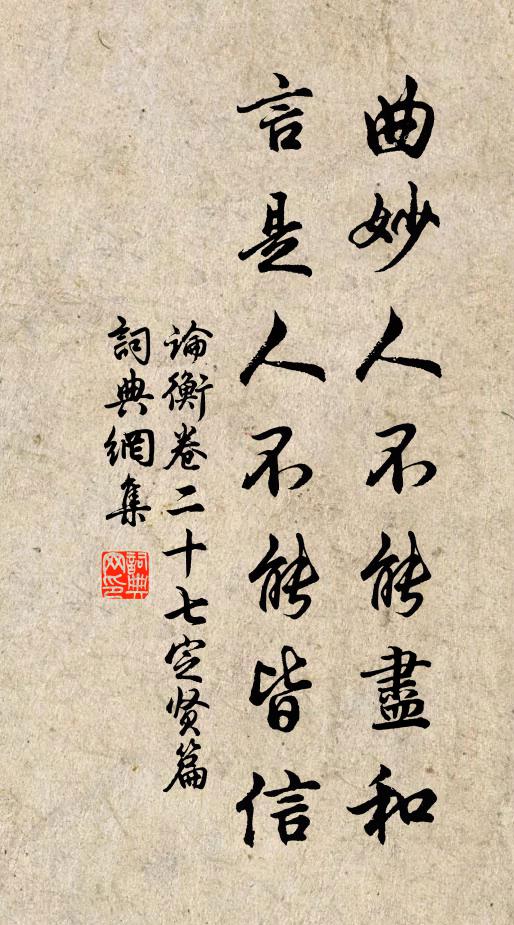 曲妙人不能盡和
言是人不能皆信
論衡卷二十七定贤篇
詞典網集
詞典网印